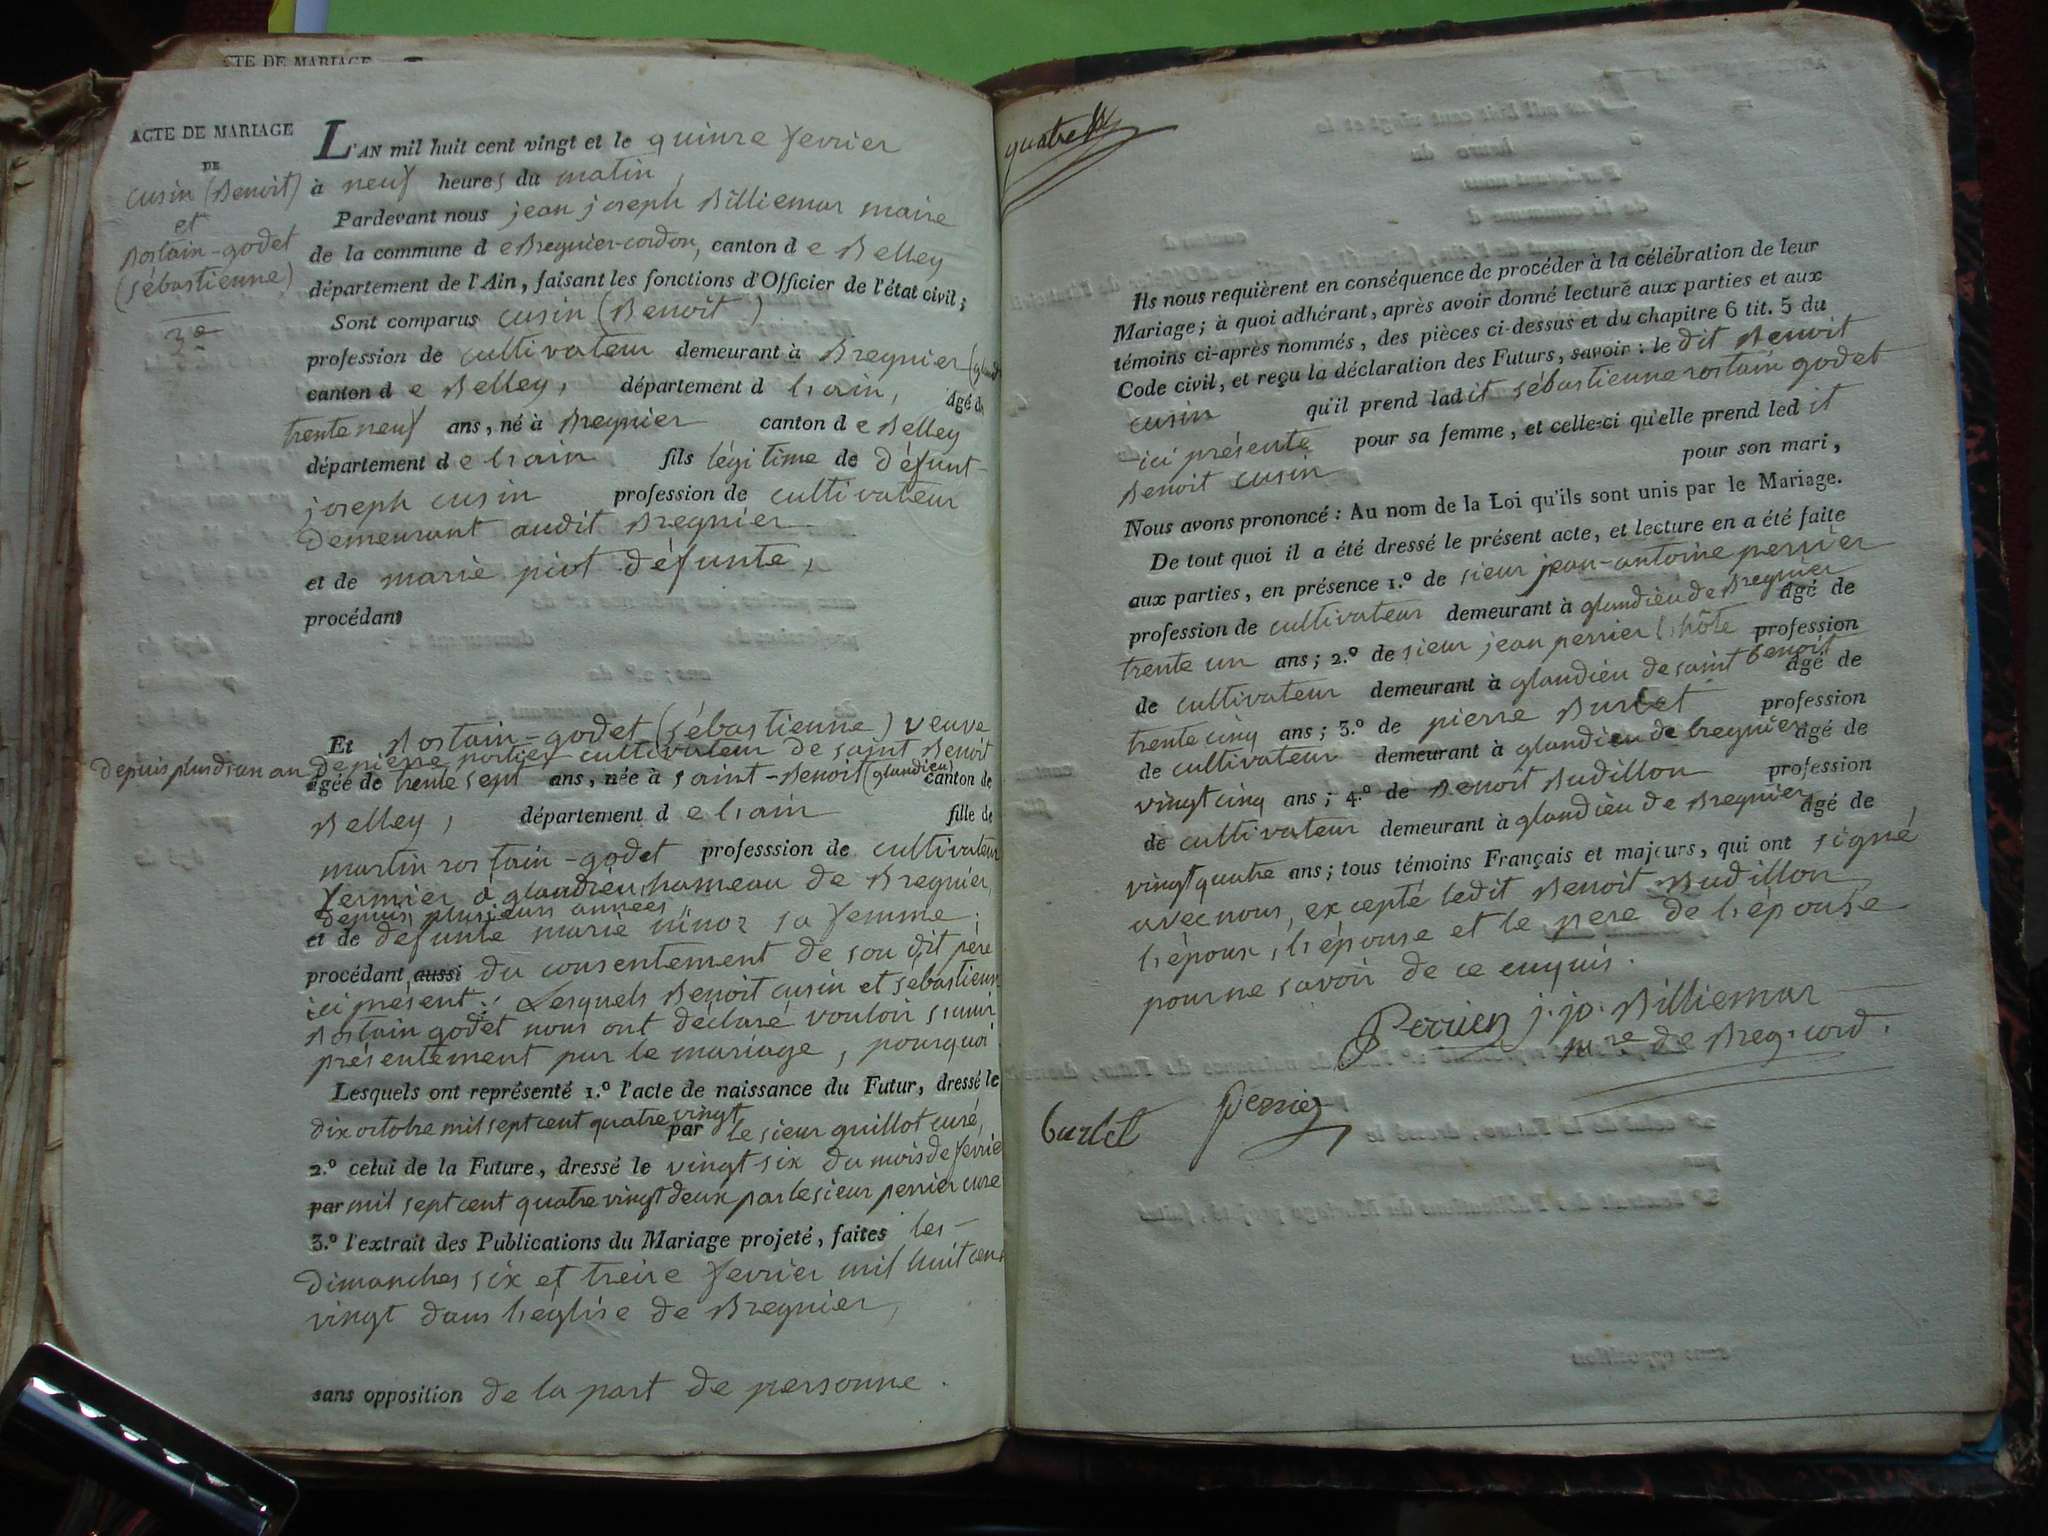 ACTE DE MARIAGE
ACTE DE MARIAGE
DE
cusin (Benoit)
et
Rostain-godet
(sébastienne)
3e
L'AN mil huit cent vingt et le quinze fevrier
à neuf heures du matin,
Pardevant nous jean joseph Billiemar maire
de la commune de Bregnier-cordon, canton de Belley
département de l'Ain, faisant les fonctions d'Officier de l'état civil;
Sont comparus cusin (Benoit)
profession de cultivateur demeurant à Bregnier
canton de Belley, département d l'ain, âgé de
trente neuf ans, né à Bregnier canton de Belley
département de l'ain fils légitime de défunt
joseph cusin profession de cultivateur
demeurant audit Bregnier
et de marie piot défunte,
procédant
Et Rostain-godet (sébastienne) veuve
depuis plus d'un an de pierre portier cultivateur de saint Benoit
âgée de trente sept ans, née à saint-Benoit (glandieu) canton de
Belley, département de l'ain fille de
martin rostain-godet professsion de cultivateur
fermier a glandieu, hameau de Bregnier,
depuis plusieurs années,
et de defunte marie sa femme,
procédant aussi du consentement de son dit père
ici présent: Lesquels Benoit cusin et sébastienne
Rostain godet nous ont déclaré vouloir s'unir
présentement par le mariage, pourquoi
Lesquels ont représenté 1.º l'acte de naissance du Futur, dressé le
dix octobre mil sept cent quatre vingt par le sieur guillot curé,
2.º celui de la Future, dressé le vingt-six du mois de fevrier
par mil sept cent quatre vingt deux par le sieur perrier curé
3.º l'extrait des Publications du Mariage projeté, faites les
dimanches six et treize fevrier mil huit cent
vingt dans l'église de Bregnier,
sans opposition de la part de personne.
quatre
Ils nous requièrent en conséquence de procéder à la célébration de leur
Mariage; à quoi adhérant, après avoir donné lecture aux parties et aux
témoins ci-après nommés, des pièces ci-dessus et du chapitre 6 tit. 5 du
Code civil, et reçu la déclaration des Futurs, savoir: le dit Benoit
cusin qu'il prend ladit sébastienne rostain godet
ici présente pour sa femme, et celle-ci qu'elle prend ledit
Benoit cusin pour son mari,
Nous avons prononcé: Au nom de la Loi qu'ils sont unis par le Mariage.
De tout quoi il a été dressé le présent acte, et lecture en a été faite
aux parties, en présence 1.º de sieur jean-antoine perrier
profession de cultivateur demeurant à glandieu de Bregnier âgé de
trente un ans; 2.º de sieur jean perrier l'hôte profession
de cultivateur demeurant à glandieu de saint benoit âgé de
trente cinq ans; 3.º de pierre Burlet profession
de cultivateur demeurant à glandieu de bregnier âgé de
vingt cinq ans; 4.º de Benoit Budillon profession
de cultivateur demeurant à glandieu de Bregnier âgé de
vingt quatre ans; tous témoins Français et majeurs, qui ont signé
avec nous, excepté ledit Benoit Budillon
l'époux, l'épouse et le pere de l'épouse
pour ne savoir de ce enquis.
Perrier j. jp. Billiemar
mre de Breg. cord.
burlet perrier